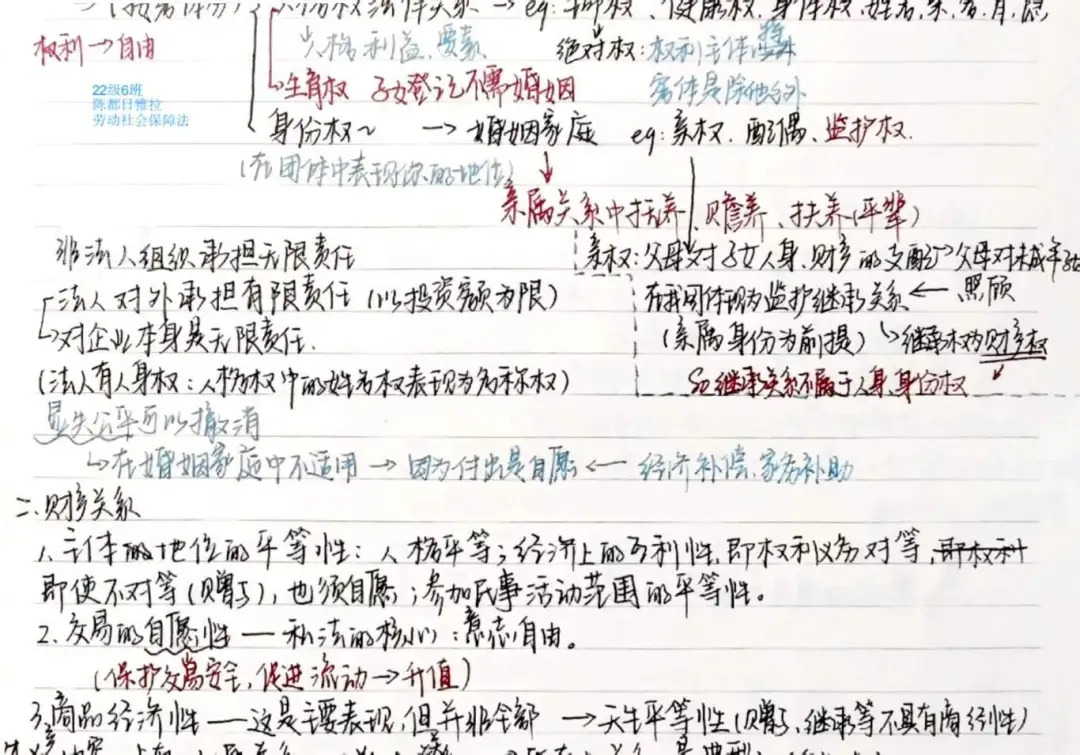 人格权法律关系 → eg: 生命权、健康权、身体权、姓名、肖、名、荣、隐
权利→自由
人格利益、要素 绝对权：权利主体特
生育权 子女登记不需婚姻 客体是除他以外
22级6班
陈都日雅拉
劳动社会保障法
身份权~ → 婚姻家庭 eg: 亲权、配偶、监护权.
(在团体中表现你的地位)
亲属关系中扶养、赡养、扶养(平辈)
非法人组织承担无限责任
亲权：父母对子女人身、财产的支配→父母对未成年子
法人对外承担有限责任 (以投资额为限)
在我国体现为监护继承关系 ← 照顾
↳对企业本身是无限责任.
(亲属身份为前提) ↳继承权为财产权
(法人有人身权：人格权中的姓名权表现为名称权)
So继承关系不属于人身.身份权
显失公平可以撤消
↳在婚姻家庭中不适用 → 因为付出是自愿 ← 经济补偿、家务补助
二、财产关系
1、主体的地位的平等性：人格平等；经济上的互利性，即权利义务对等，即权利
即使不对等(赠与)，也须自愿；参加民事活动范围的平等性。
2、交易的自愿性 — 私法的核心：意志自由。
(保护交易安全，促进流动→升值)
3、商品经济性 — 这是主要表现，但并非全部 → 天生平等性(赠与、继承等不具有商经性)